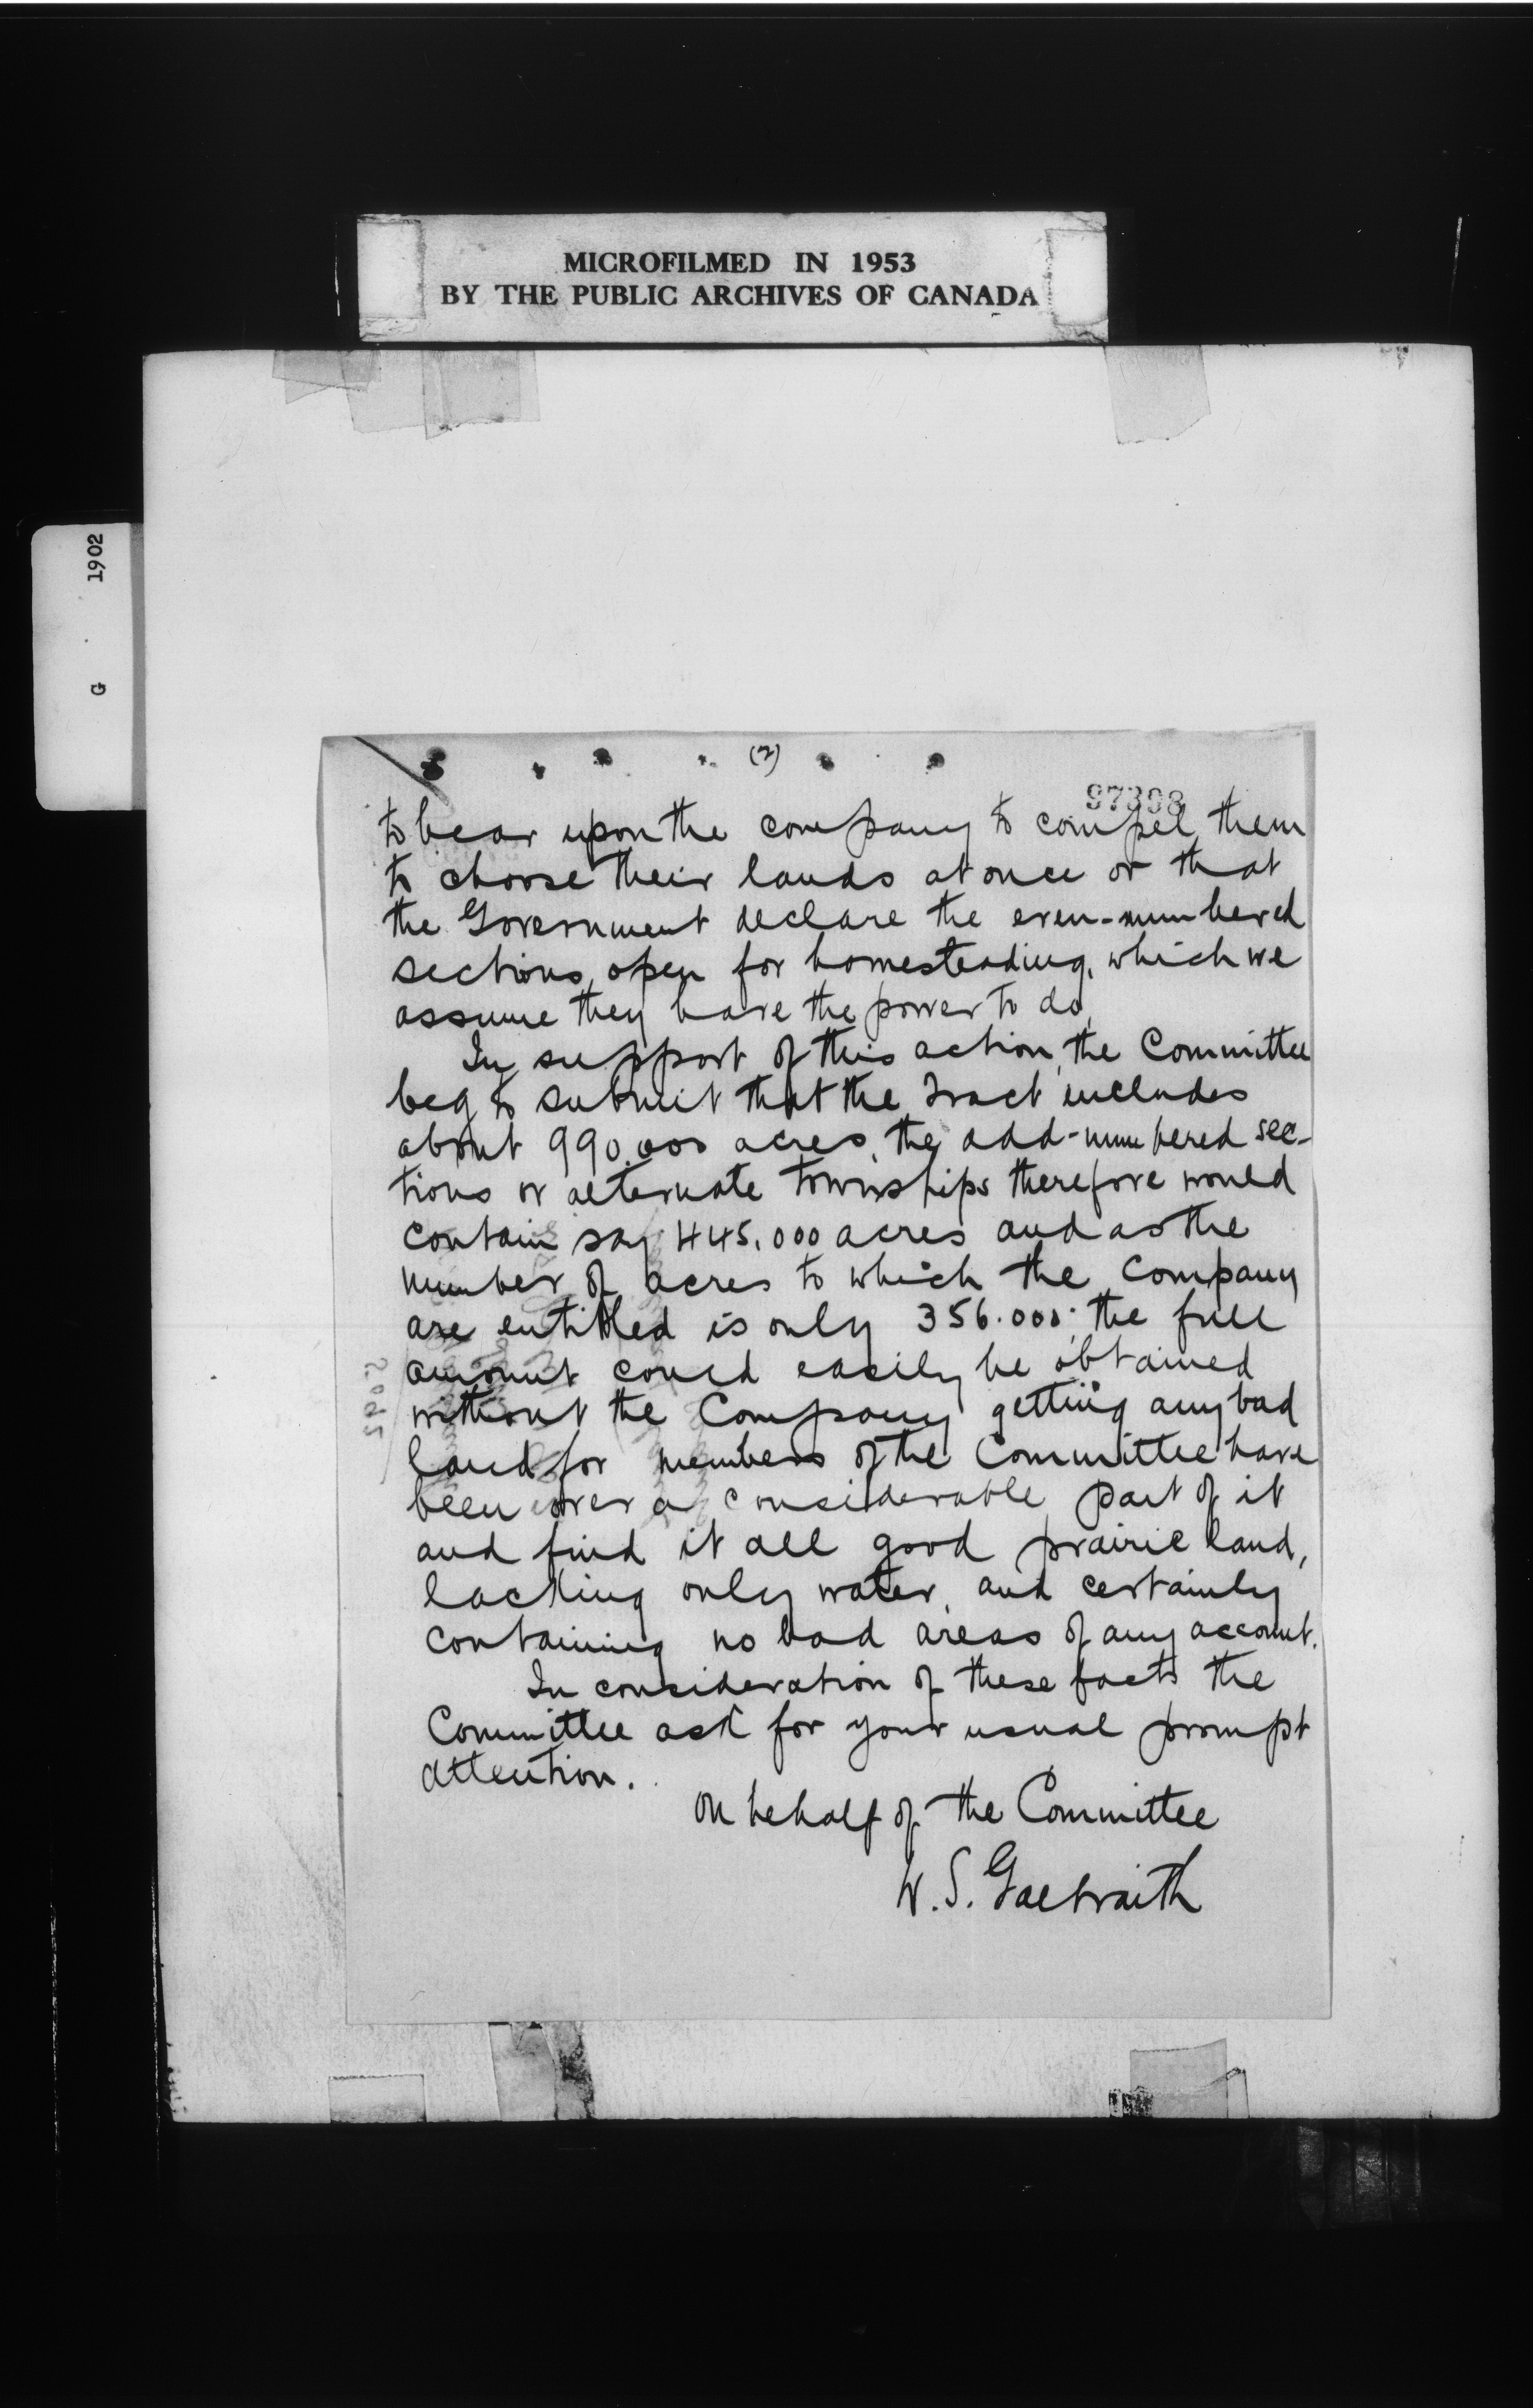 MICROFILMED IN 1953
BY THE PUBLIC ARCHIVES OF CANADA
G 1902
(2)
97398
to bear upon the company to compel them
to choose their lands at once or that
the Government declare the even-numbered
sections open for homesteading, which we
assume they have the power to do.
In support of this action, the Committee
beg to submit that the tract includes
about 990.000 acres, the odd-numbered sec-
tions or alternate townships therefore would
contain say 445.000 acres and as the
number of acres to which the company
are entitled is only 356.000; the full
amount could easily be obtained
without the Company getting any bad
land for members of the Committee have
been over a considerable part of it
and find it all good prairie land,
lacking only water, and certainly
containing no bad areas of any account.
In consideration of these facts the
Committee ask for your usual prompt
attention.
On behalf of the Committee
W. S. Galbraith